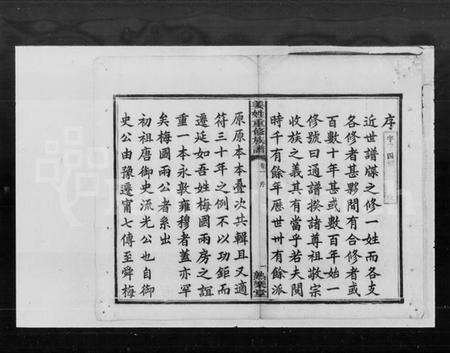 序
近世譜牒之修一姓而各支
各修者甚夥間有合修者或
百數十年甚或數百年始一
修號曰通譜揆諸尊祖敬宗
收族之義其有當乎若夫閱
時千有餘年歷世卅有餘派
姜姓重修族譜
卷一 序
一
原原本本疊次共輯且又適
符三十年之例不以功鉅而
遷延如吾姓梅國兩房之誼
重一本永敦雍穆者蓋亦罕
矣梅國兩公者系出
初祖唐御史流光公也自御
史公由豫遷甯七傳至舜梅